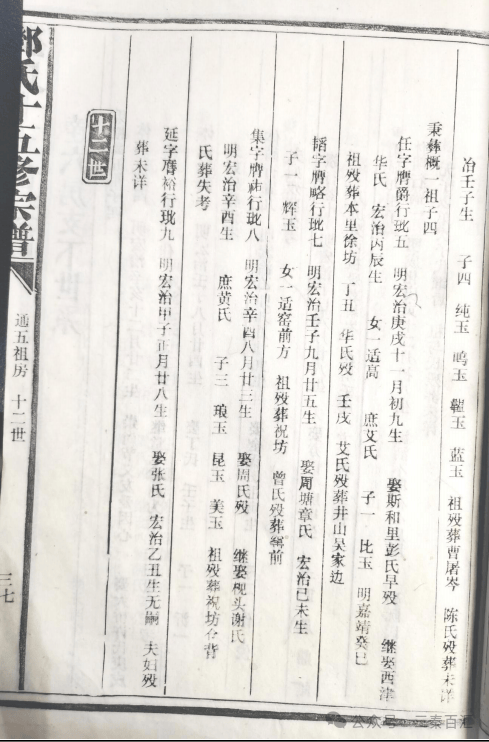 治壬子生 子四 纯玉 鸣玉 玉 蓝玉 祖殁葬曹屠岑 陈氏殁葬未详
秉彝概一祖子四
任字牌爵行珑五 明宏治庚戌十一月初九生 娶斯和里彭氏早殁 继娶西津
华氏 宏治丙辰生 女一适高 庶艾氏 子一 比玉 明嘉靖癸巳
祖殁葬本里馀坊 丁丑 华氏殁 壬戌 艾氏殁葬井山吴家边
韬字牌略行珑七 明宏治壬子九月廿五生 娶周塘章氏 宏治己未生
子一 辉玉 女一适窑前方 祖殁葬祝坊 曾氏殁葬前
集字牌祐行珑八 明宏治辛酉八月廿三生 娶周氏殁 继娶枧头谢氏
明宏治辛酉生 庶黄氏 子三 琅玉 昆玉 美玉 祖殁葬祝坊仓背
氏葬失考
延字膺裕行珑九 明宏治甲子正月廿八生 娶张氏 宏治乙丑生无嗣 夫妇殁
葬未详
十二世
氏十五修宗谱
通五祖房 十二世
三七
公众号·三秦百汇